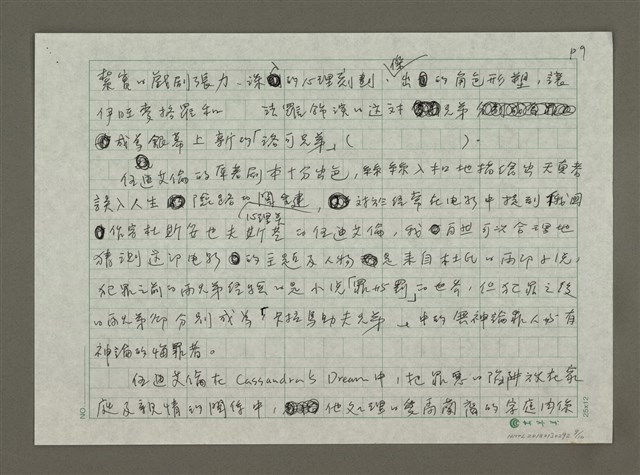 p9
紮實的戲劇張力、深入的心理刻劃、傑出的角色形塑，讓
伊旺麥格羅和　法羅飾演的這對兄弟
成為銀幕上新的「洛可兄弟」（　　　）。
伍迪艾倫的原著劇本十分出色，絲絲入扣地描繪出天真者
誤入人生　路的關鍵心理學，對於經常在電影中提到俄國
作家杜斯妥也夫斯基的伍迪艾倫，我們可以合理地
猜測這部電影的主題及人物是來自杜氏的兩部小說，
犯罪之前的兩兄弟經驗的是小說「罪與罰」的世界，但犯罪之後
的兩兄弟卻分別成為「卡拉馬助夫兄弟」中的無神論罪人與有
神論的悔罪者。
伍迪艾倫在Cassandra's Dream中，把罪惡的陷阱放在家
庭及親情的關係中，他處理的雙層蘭的家庭關係
NO
25x12